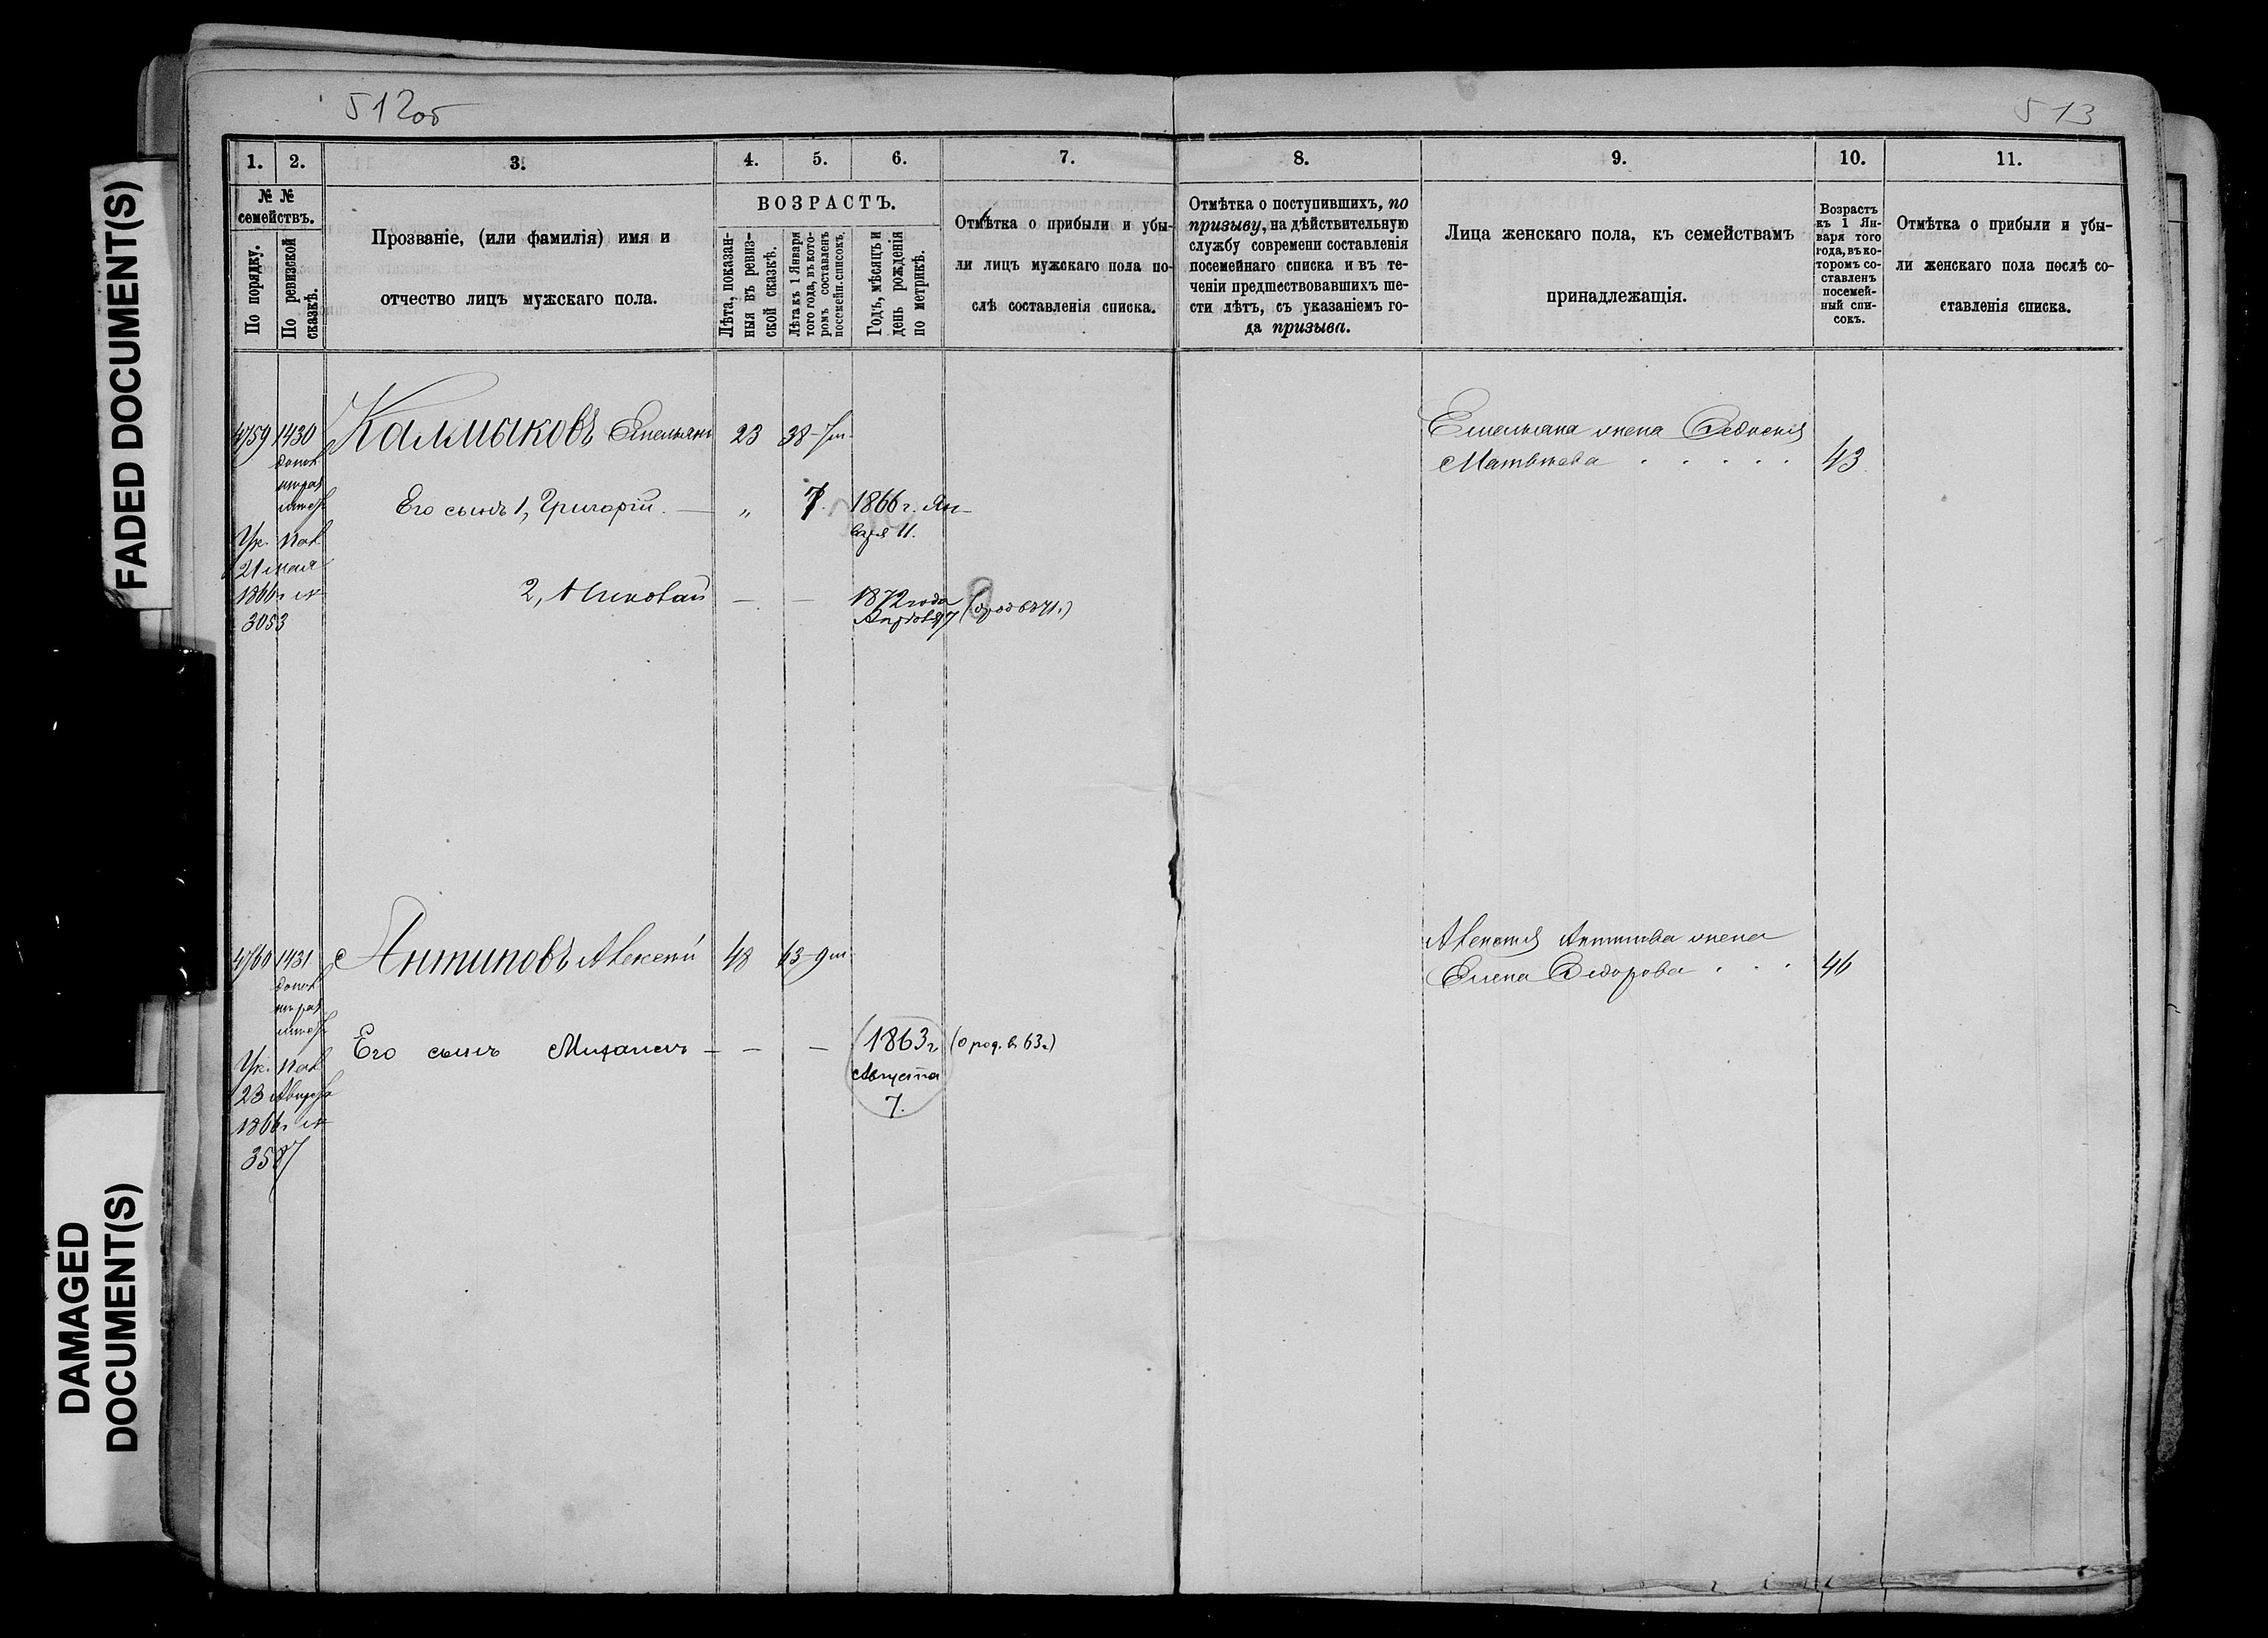 512об
513
FADED DOCUMENT(S)
DAMAGED
DOCUMENT(S)
1. 2. 3. 4. 5. 6. 7. 8. 9. 10. 11.
№ №
семействъ.
По порядку.
По ревизской
сказкѣ.
Прозваніе, (или фамилія) имя и
отчество лицъ мужскаго пола.
ВОЗРАСТЪ.
Лѣта, показан-
ныя въ ревиз-
ской сказкѣ.
Лѣта къ 1 Января
того года, въ кото-
ромъ составленъ
посемейн. списокъ.
Годъ, мѣсяцъ и
день рожденія
по метрикѣ.
Отмѣтка о прибыли и убы-
ли лицъ мужскаго пола по-
слѣ составленія списка.
Отмѣтка о поступившихъ, по
призыву, на дѣйствительную
службу современи составленія
посемейнаго списка и въ те-
ченіи предшествовавшихъ ше-
сти лѣтъ, съ указаніемъ го-
да призыва.
Лица женскаго пола, къ семействамъ
принадлежащія.
Возрастъ
къ 1 Ян-
варя того
года, въ ко-
торомъ со-
ставленъ
посемей-
ный спи-
сокъ.
Отмѣтка о прибыли и убы-
ли женскаго пола послѣ со-
ставленія списка.
4759 1430 Калмыковъ Емельянъ 23 38-7м
Емельяна жена Федосья
Матвѣева 43
Его сынъ 1, Григорій. — „ 7. 1866 г. Ян-
варя 11.
Ук. пал
21 мая
1866 г №
3053
2, Николай — — 1872 года
Апрѣля 7
4760 1431 Антиповъ Алексѣй 48 63-9м
Алексѣя Антипова жена
Елена Ѳедорова 46
Его сынъ Михаилъ — — — 1863 г. (о род. в 63 г.)
Августа
7.
Ук. пал
23 Августа
1866 г №
3587